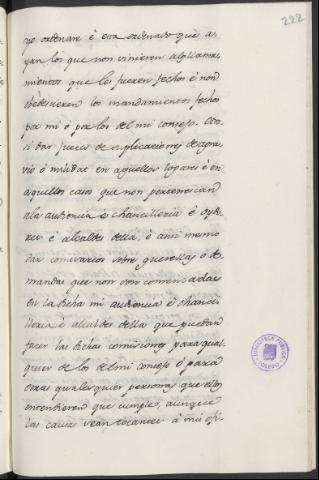 222
yo ordenare é era ordenado que a-
yan los que non vinieren a los llama-
mientos que les fueren fechos é non
obedescieren los mandamientos fechos
por mi ó por los del mi consejo. Otro
si dar jueces de suplicaciones de agra-
vio ó nulidad en aquellos logares é en
aquellos casos que non pertenescan
ala audiencia é chancilleria é oydo-
res é alcaldes della, é ansi mesmo
dar comisarios sobre querellas ó de-
mandas que non son comenzadas
en la dicha mi audiencia é chanci-
lleria é alcaldes della que puedan
facer las dichas comisiones para qual-
quier de los del mi consejo ó para
otras qualesquier personas que ellos
entendieren que cumple, aunque
las causas sean tocantes á mis ofi-
BIBLIOTECA PUBLICA
TOLEDO